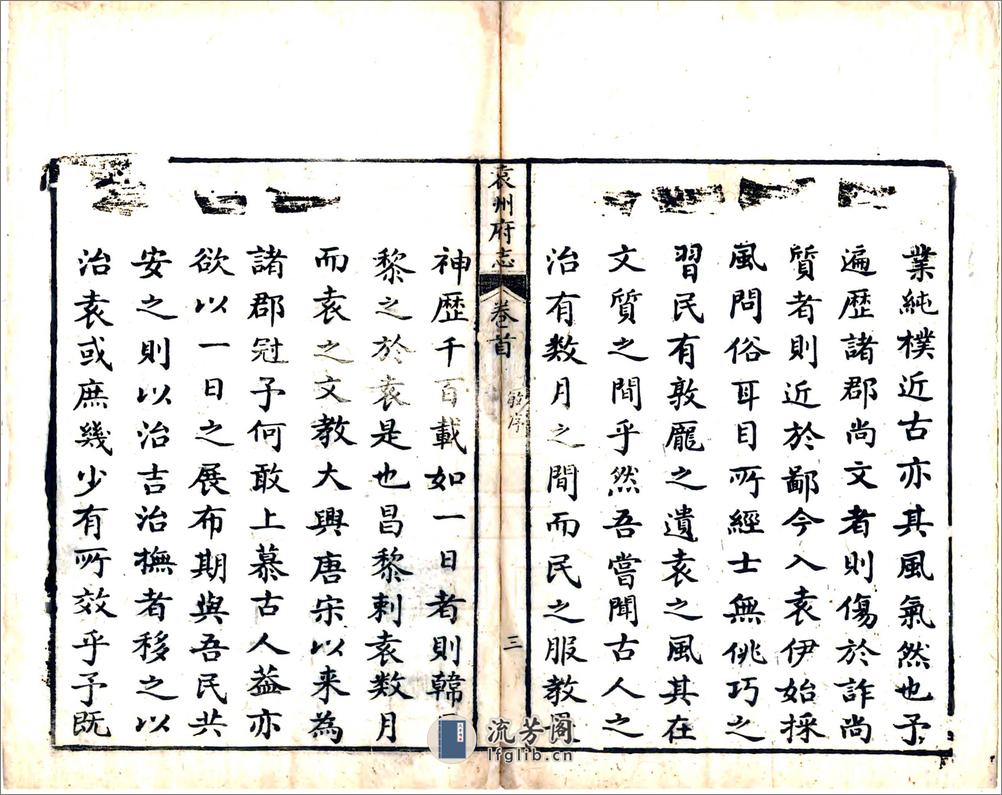 業純樸近古亦其風氣然也予
遍歷諸郡尚文者則傷於詐尚
質者則近於鄙今入袁伊始採
風問俗耳目所經士無佻巧之
習民有敦龐之遺袁之風其在
文質之間乎然吾嘗聞古人之
治有数月之間而民之服教
袁州府志
卷首
序
三
神歷千百載如一日者則韓
黎之於袁是也昌黎刺袁数月
而袁之文教大興唐宋以来為
諸郡冠予何敢上慕古人葢亦
欲以一日之展布期與吾民共
安之則以治吉治撫者移之以
治袁或庶幾少有所效乎予既
流芳閣
lfglib.cn